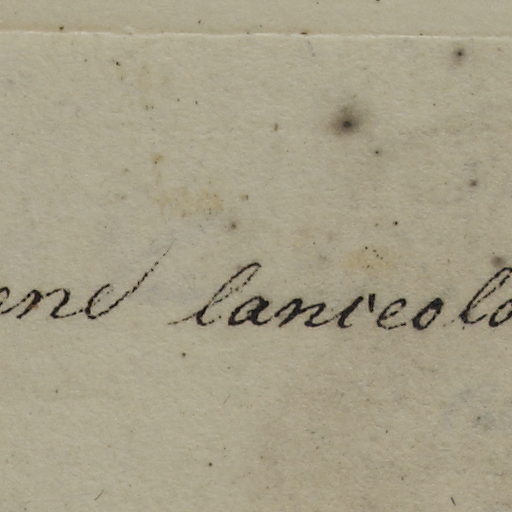 ene lanceola